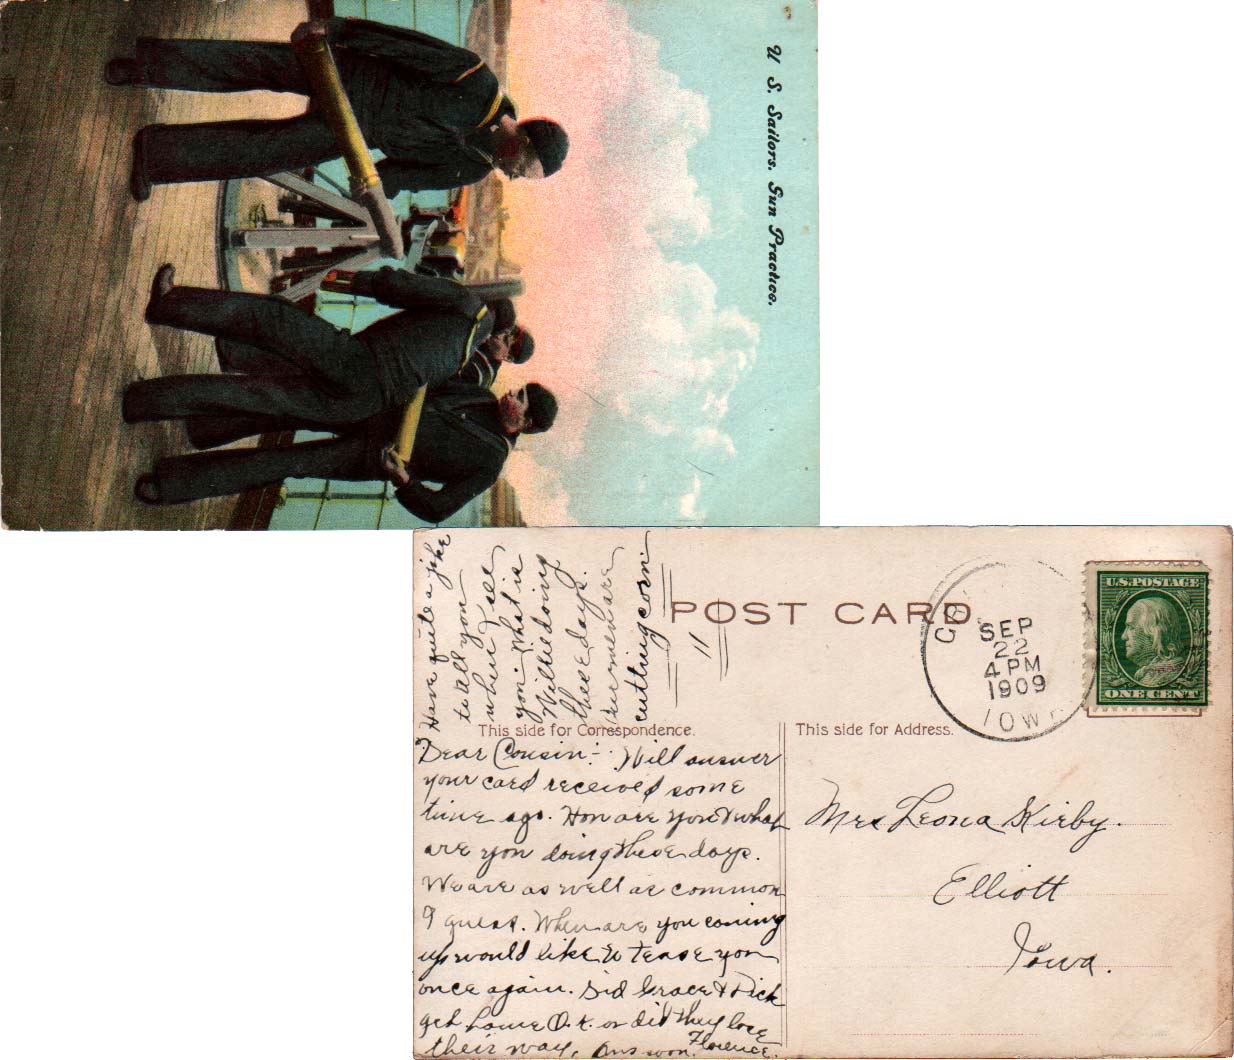 U. S. Sailors. Gun Practice.
POST CARD
SEP
22
4 PM
1909
IOWA
U.S. POSTAGE
ONE CENT
This side for Correspondence.
This side for Address.
Dear Cousin:- Will answer
your card received some
time ago. How are you & what
are you doing these days.
We are as well as common
I guess. When are you coming
up would like to tease you
once again. Did Grace & Dick
get home O.K. or did they lose
their way. Ans soon. Florence.
Have quite a joke
to tell you
when I see
you. What is
Willie doing
these days.
Our men are
cutting corn.
11
Mrs Leona Kirby.
Elliott
Iowa.